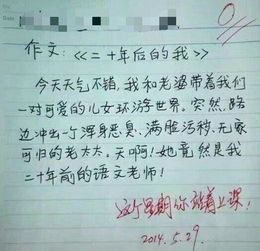 0
作文：《二十年后的我》
今天天气不错，我和老婆带着我们
一对可爱的儿女环游世界。突然，路
边冲出一个浑身恶臭、满脸污秽、无家
可归的老太太。天啊！她竟然是我
二十年前的语文老师！
这个星期你站着上课！
2014.5.29.